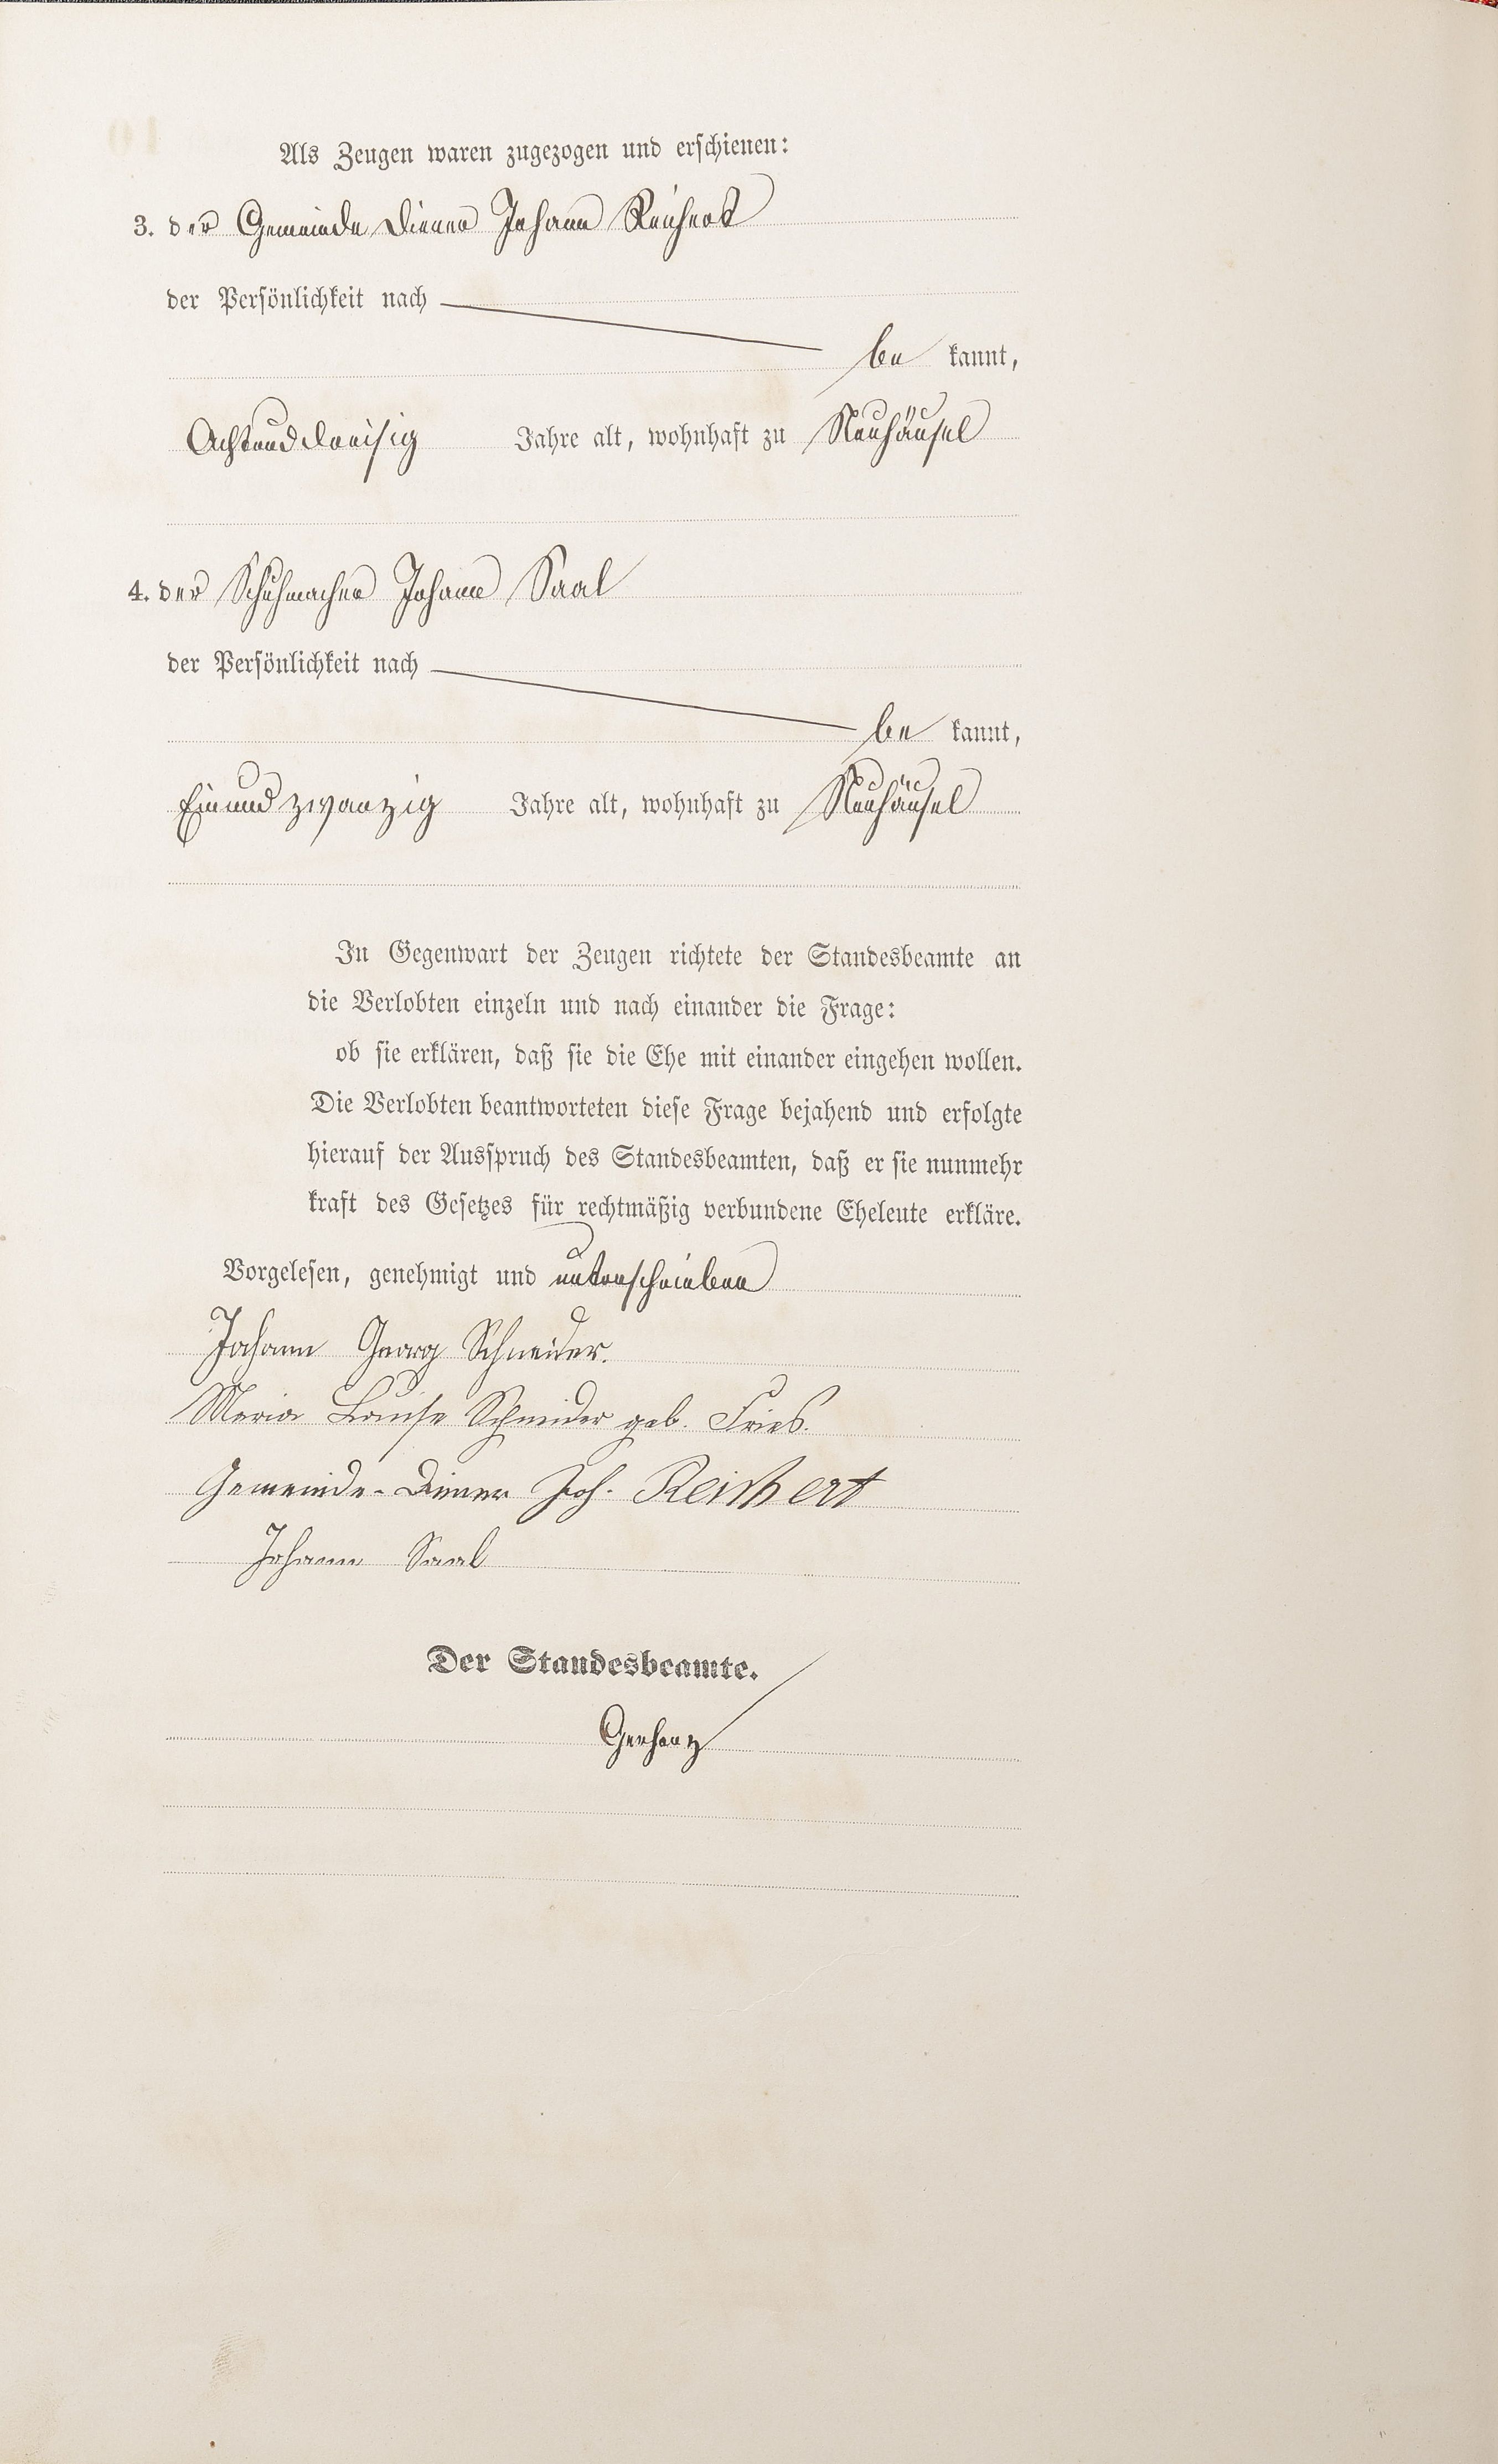 Als Zeugen waren zugezogen und erschienen:
3. der Gemeinde Diener Johann Reichert
der Persönlichkeit nach
be kannt,
Achtunddreisig Jahre alt, wohnhaft zu Neuhäusel
4. der Schuhmacher Johann Saal
der Persönlichkeit nach
be kannt,
Einundzwanzig Jahre alt, wohnhaft zu Neuhäusel
In Gegenwart der Zeugen richtete der Standesbeamte an
die Verlobten einzeln und nach einander die Frage:
ob sie erklären, daß sie die Ehe mit einander eingehen wollen.
Die Verlobten beantworteten diese Frage bejahend und erfolgte
hierauf der Ausspruch des Standesbeamten, daß er sie nunmehr
kraft des Gesetzes für rechtmäßig verbundene Eheleute erkläre.
Vorgelesen, genehmigt und unterschrieben
Johann Georg Schneider.
Maria Louise Schneider geb. Fries.
Gemeinde-Diener Joh. Reichert
Johann Saal
Der Standesbeamte.
Gerharz